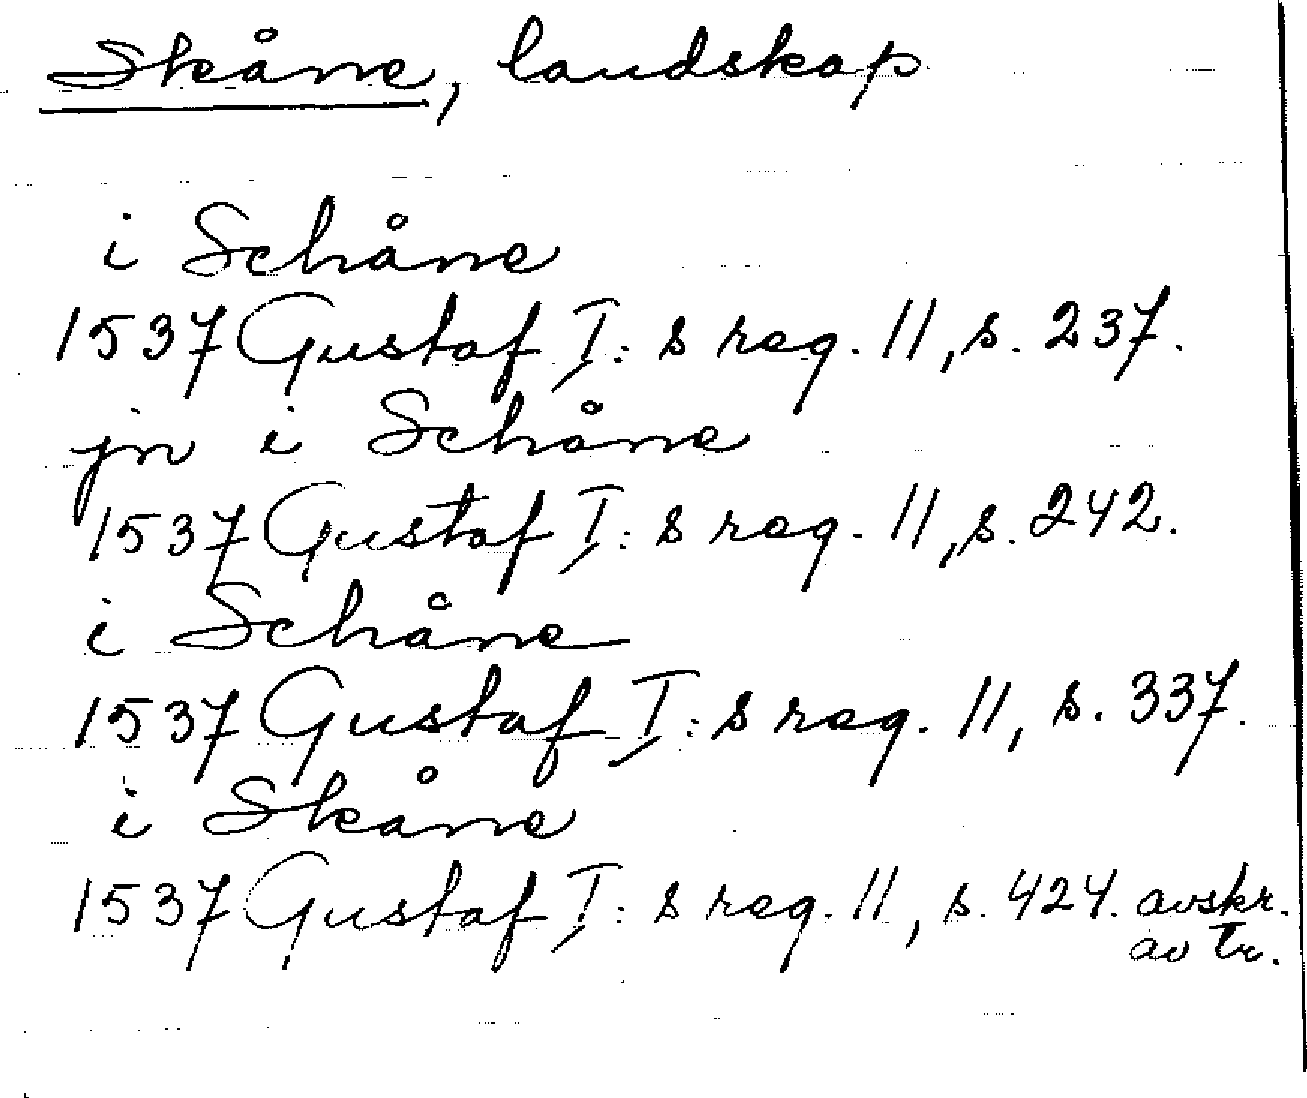 Skåne, landskap
i Schåne
1537 Gustaf I: s reg. 11, s. 237.
jn i Schåne
1537 Gustaf I: s reg. 11, s. 242.
i Schåne
1537 Gustaf I: s reg. 11, s. 337.
i Skåne
1537 Gustaf I: s reg. 11, s. 424. avskr.
av tr.